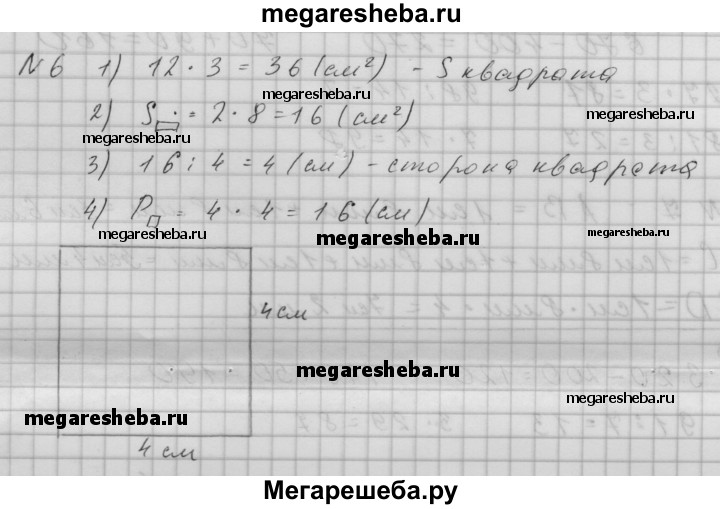 megaresheba.ru
N 6 1) 12 · 3 = 36 (см²) - S квадрата
megaresheba.ru
2) S▭ · = 2 · 8 = 16 (см²)
megaresheba.ru
megaresheba.ru
3) 16 : 4 = 4 (см) - сторона квадрата
4) P▭ = 4 · 4 = 16 (см)
megaresheba.ru
megaresheba.ru
megaresheba.ru
4 см
megaresheba.ru
megaresheba.ru
megaresheba.ru
4 см
Мегарешеба.ру